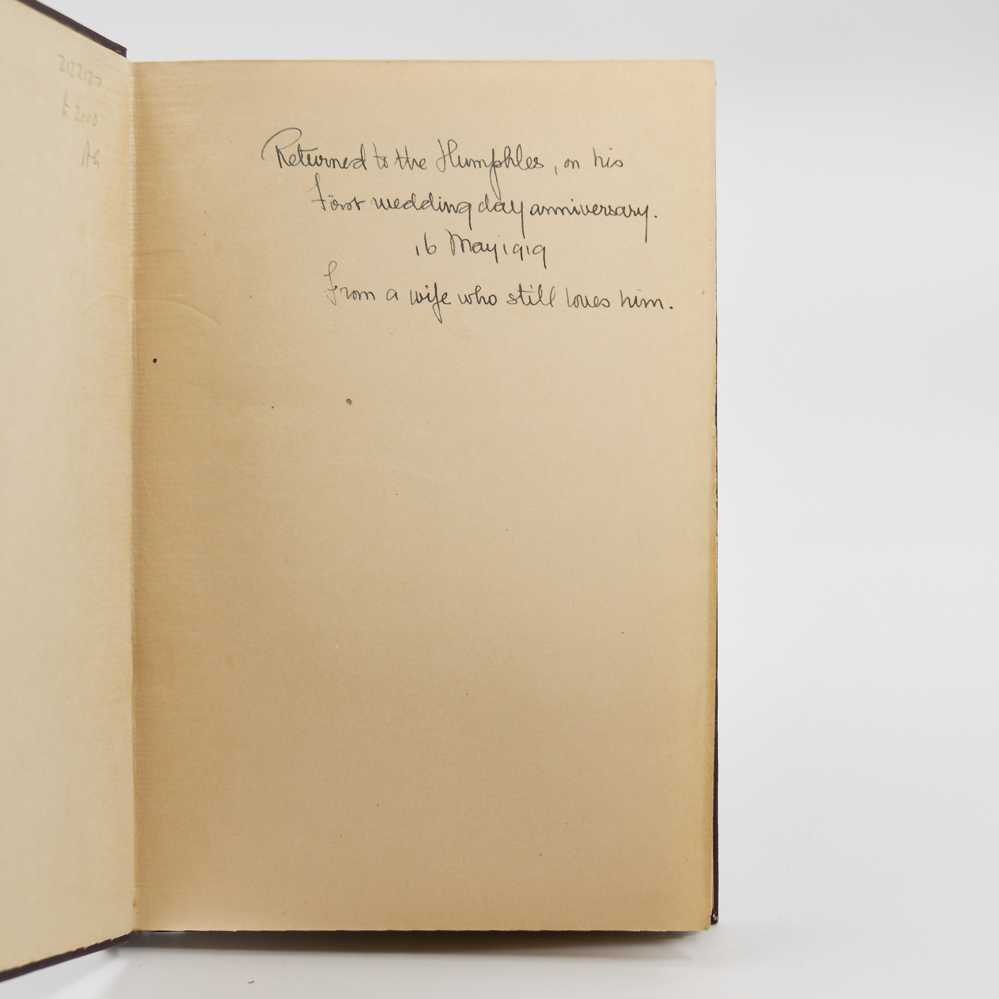 Returned to the Humphles, on his
First wedding day anniversary.
16 May 1919
From a wife who still loves him.